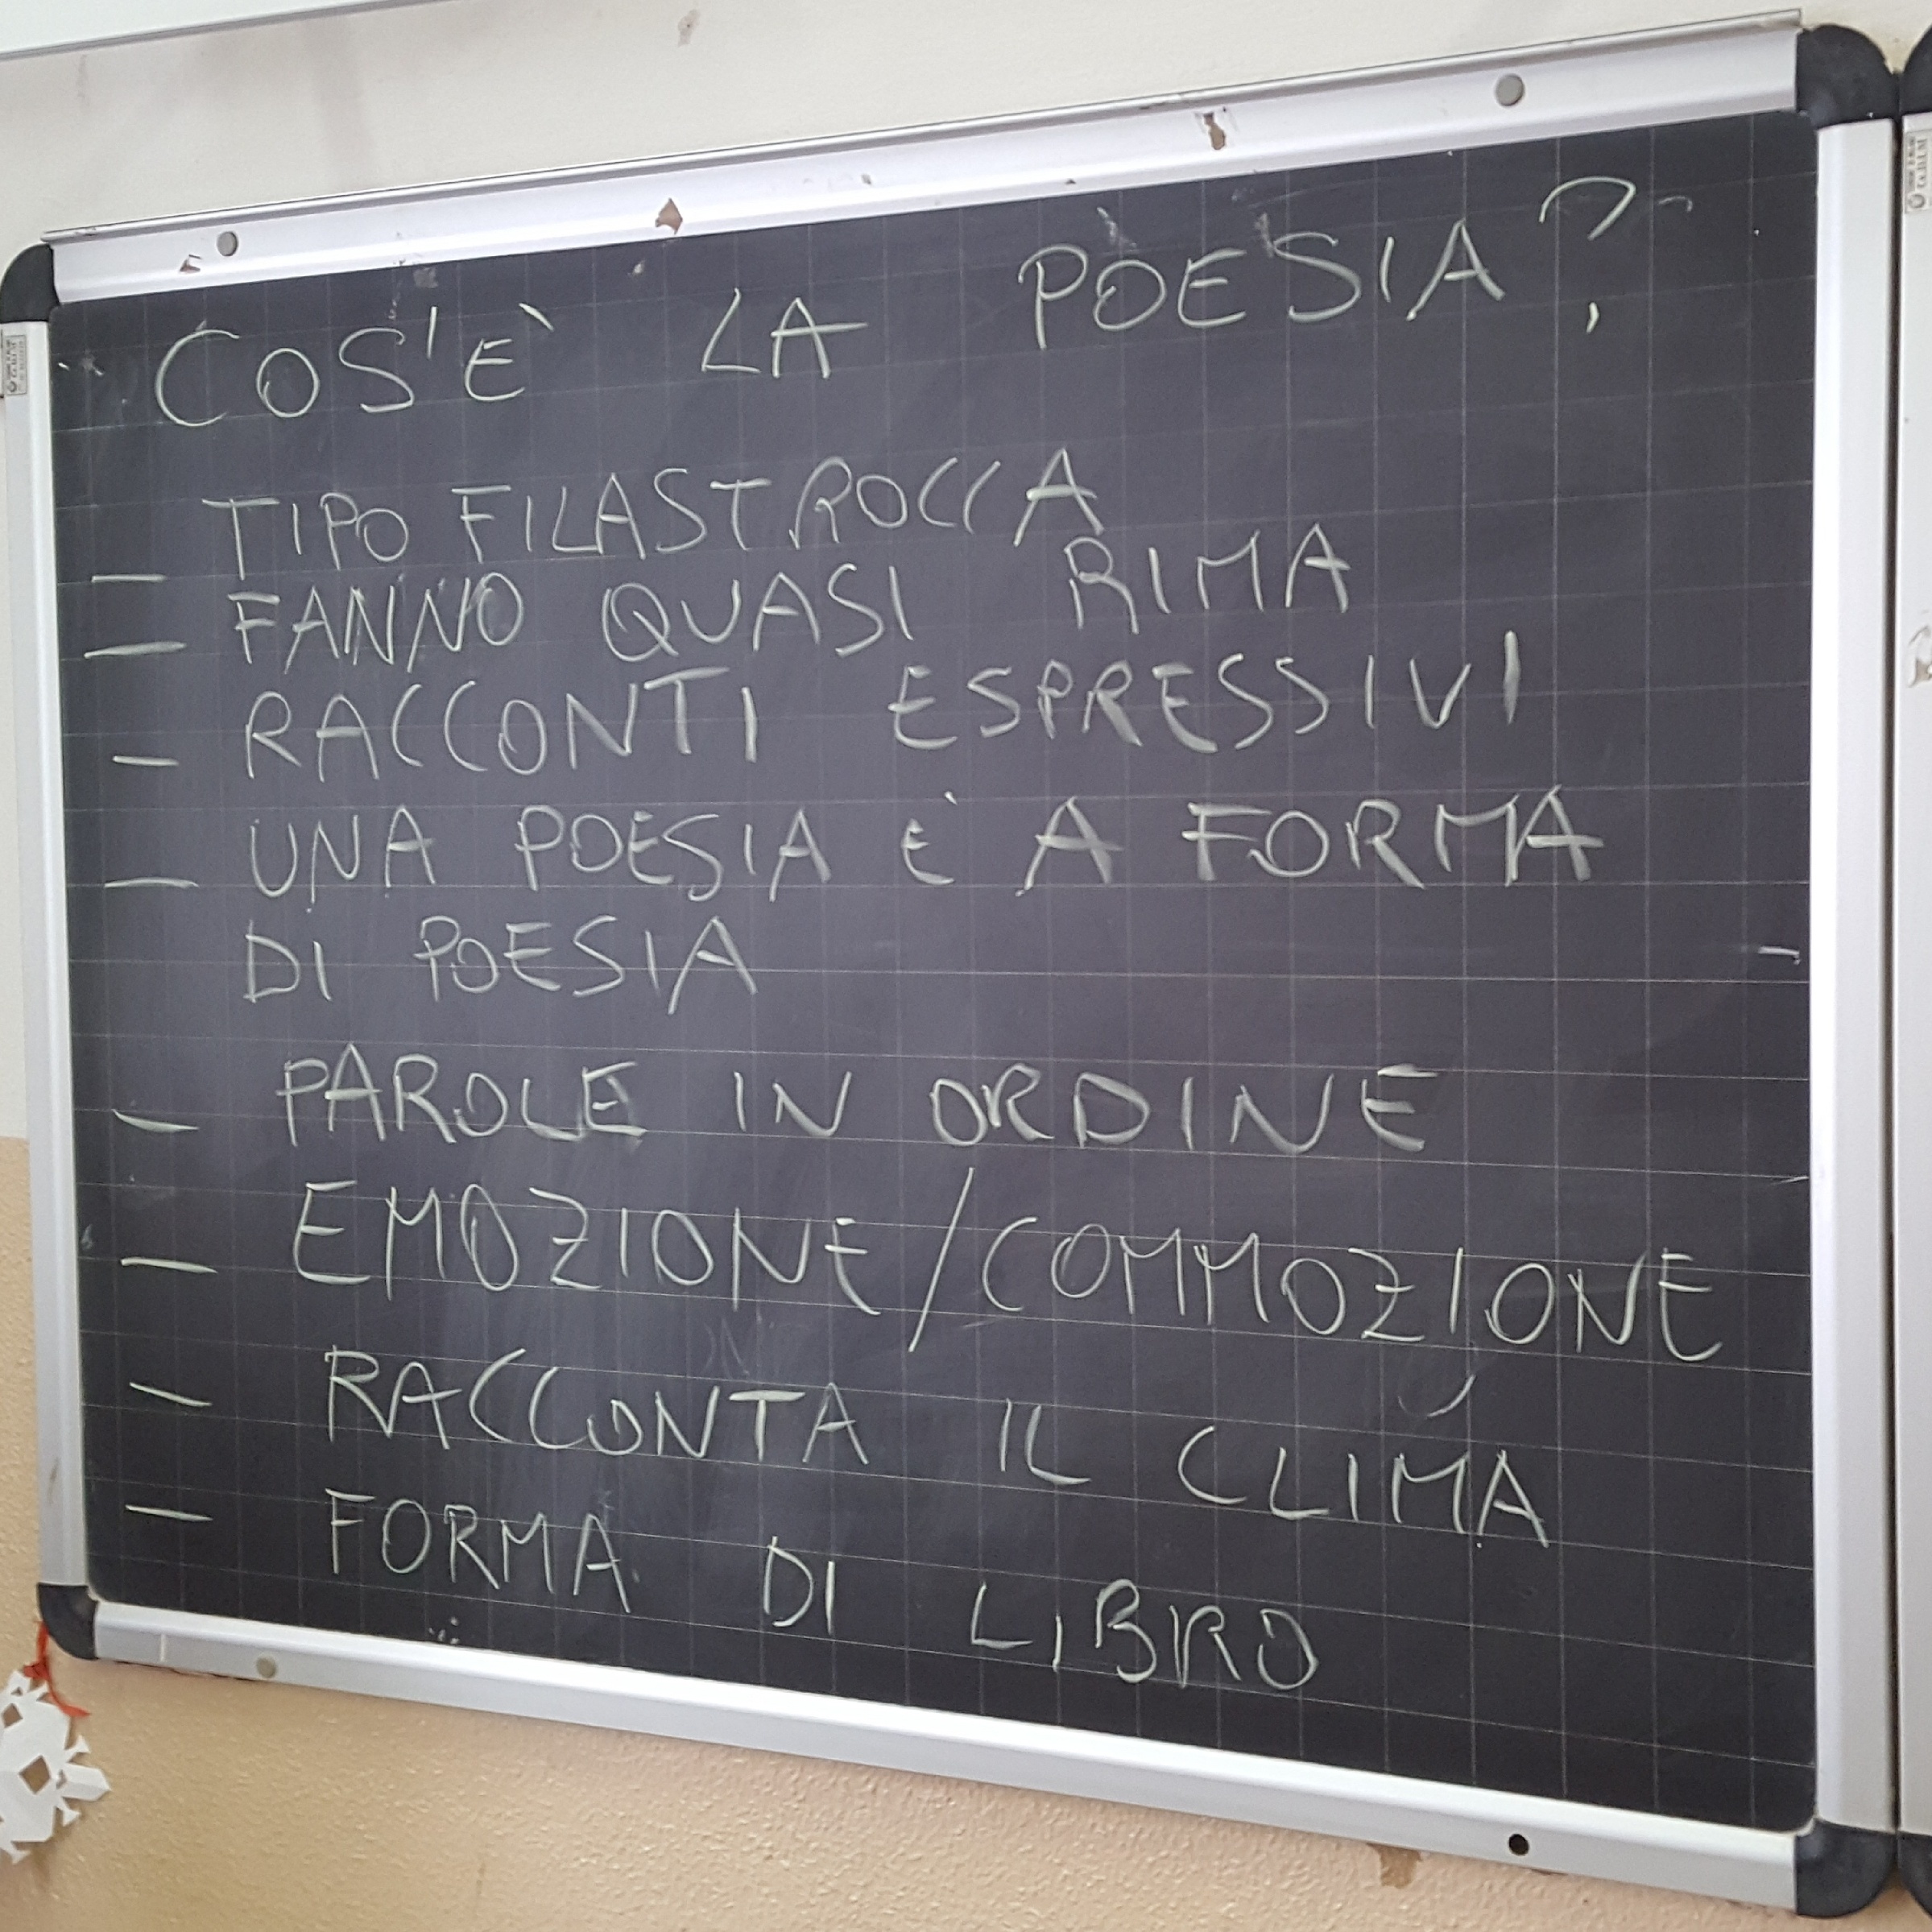 COS'È LA POESIA?
– TIPO FILASTROCCA
– FANNO QUASI RIMA
– RACCONTI ESPRESSIVI
– UNA POESIA È A FORMA
DI POESIA
– PAROLE IN ORDINE
– EMOZIONE/COMMOZIONE
– RACCONTA IL CLIMA
– FORMA DI LIBRO